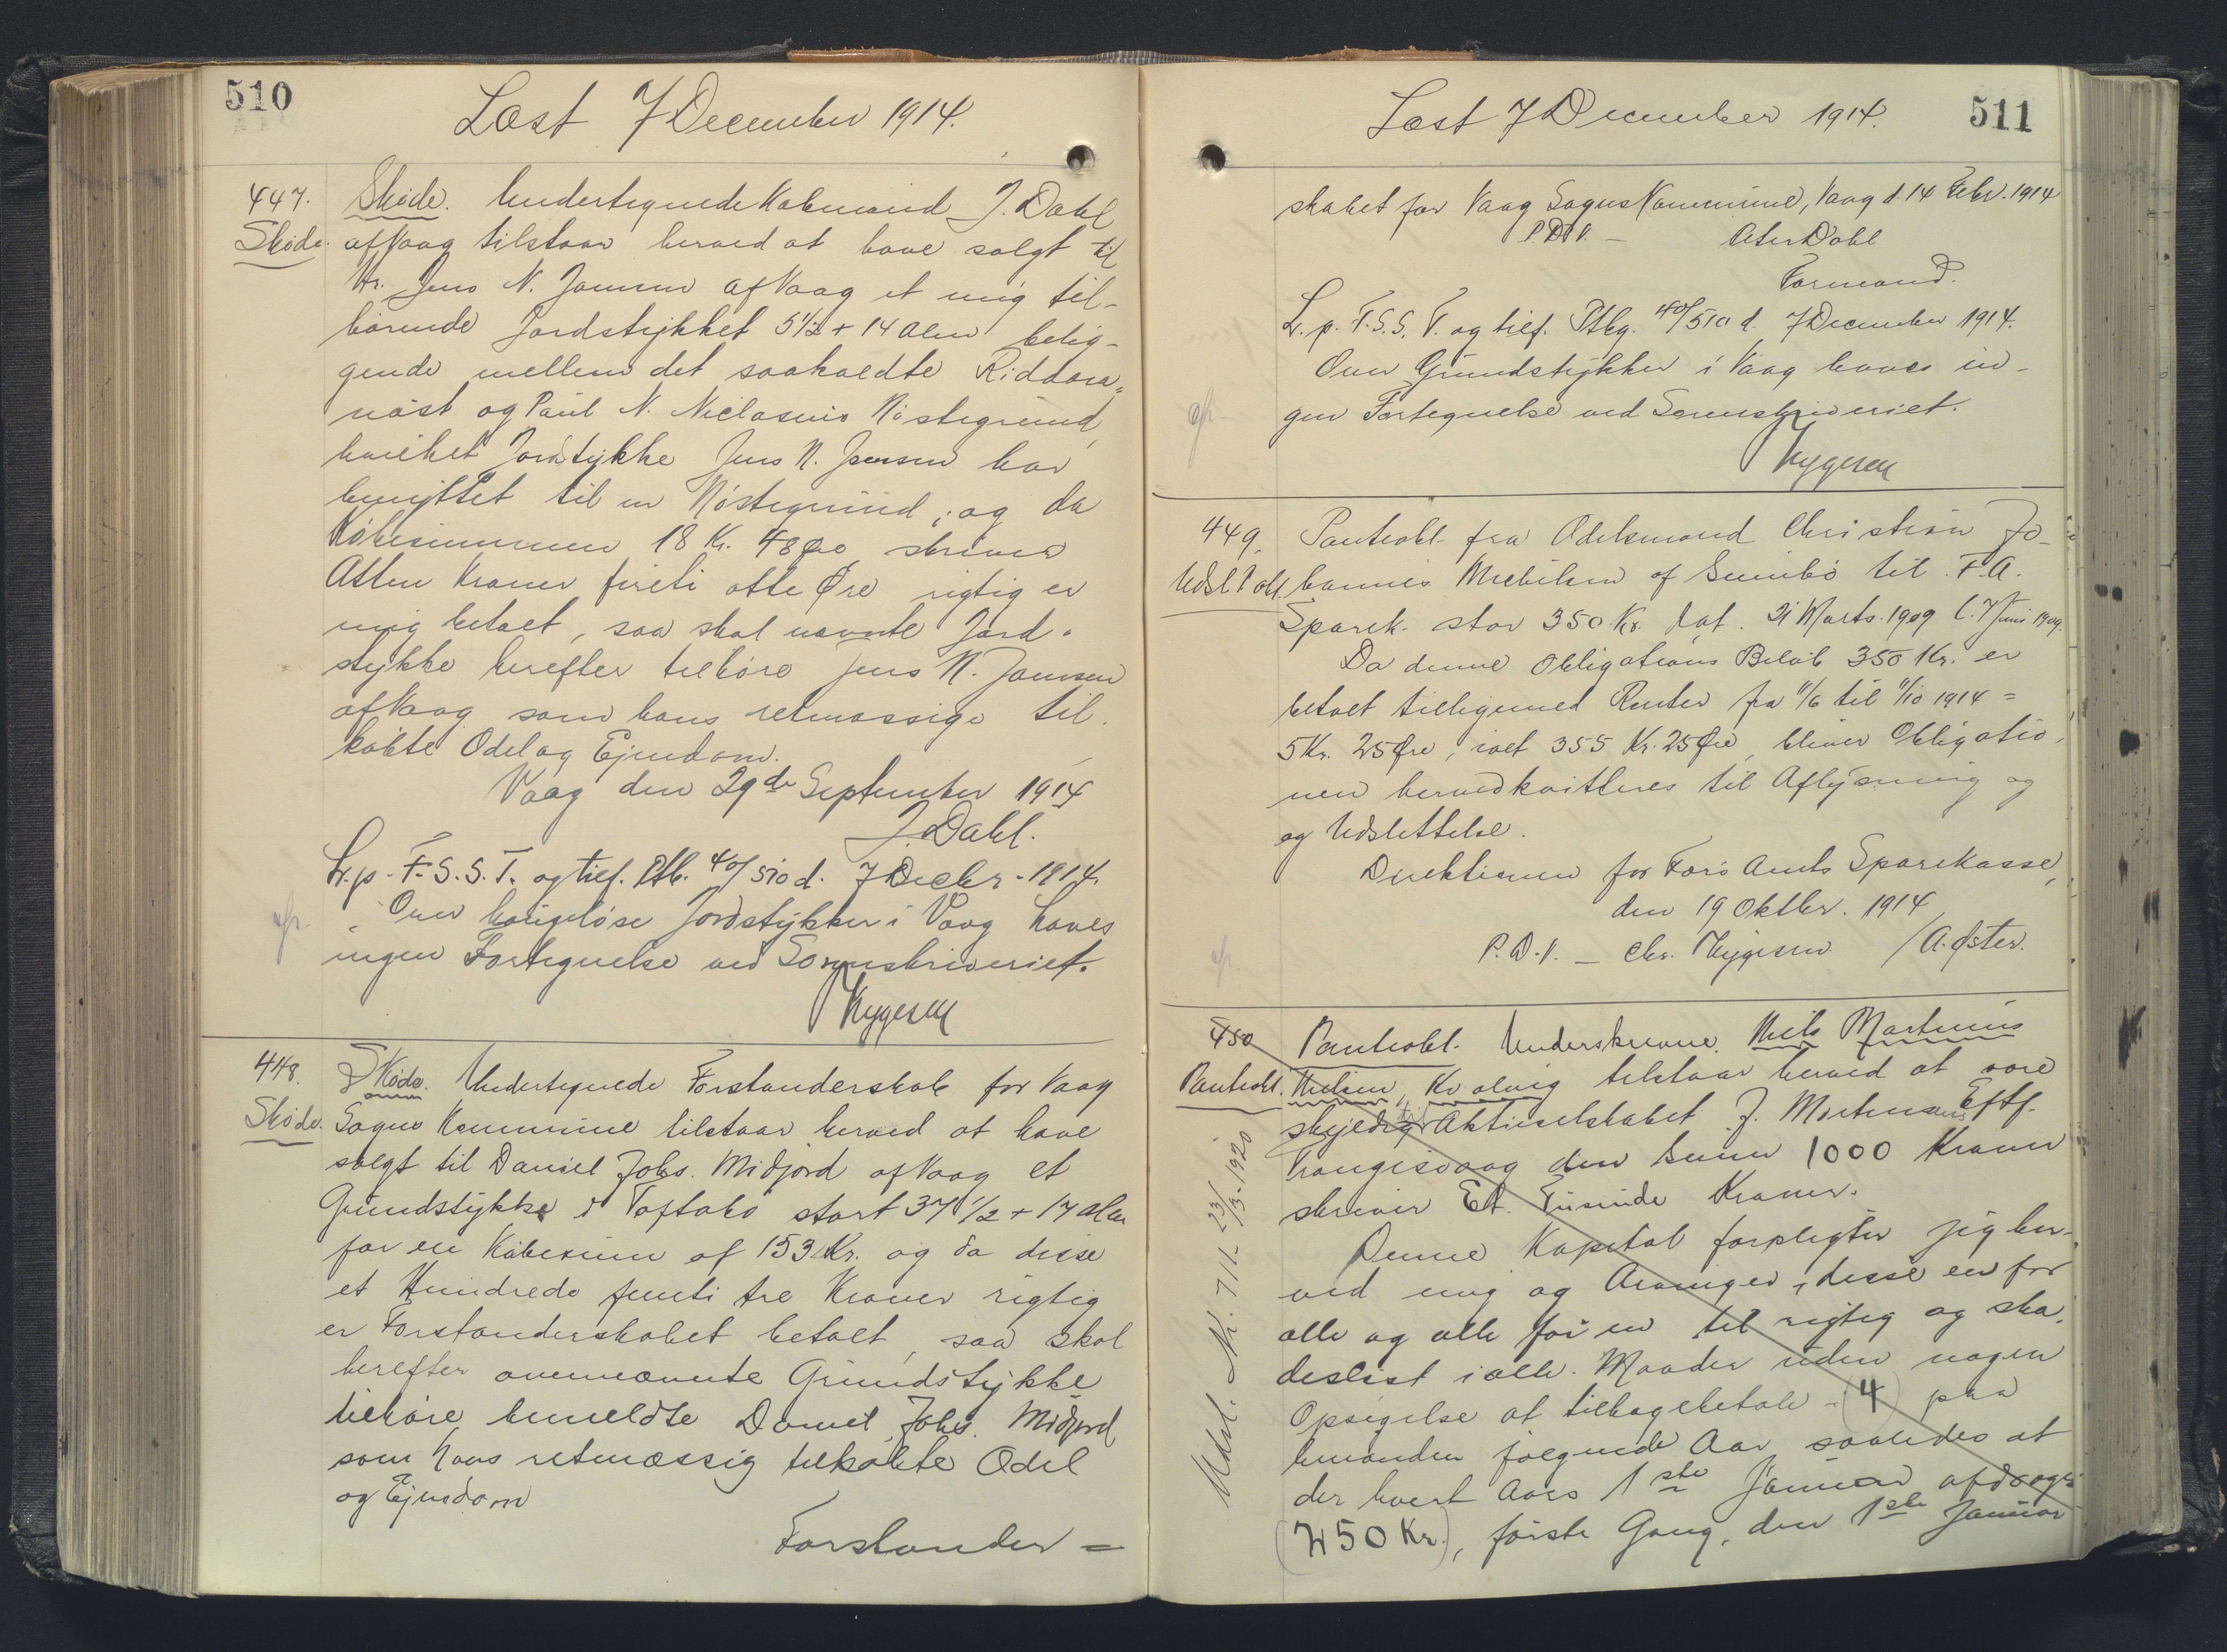 510
Læst 7 December 1914.
447.
Skøde.
Skøde. Undertegnede Kabmand J. Dahl
af Vaag tilstaar herved at have solgt til
Hr. Jens N. Jensen af Vaag et mig til-
hørende Jordstykket 5 1/2 + 14 Alen belig-
gende mellem det saakaldte Riddara-
nöst og Paul N. Niclasens Nöstegrund,
hvilket Jordstykke Jens N. Jensen har
benyttet til en Nöstegrund; og da
Købesummen 18 Kr. 48 Øre skriver
Atten Kroner fireti otte Øre rigtig er
mig betalt, saa skal nævnte Jord-
stykke herefter tilhøre Jens N. Joensen
af Vaag som hans retmæssige til-
købte Odel og Ejendom.
Vaag den 29de September 1914
J. Dahl.
L. p. F. S. S. T. og tilf. Ptb. 40/510 d. 7 Decbr. 1914.
Over haugeløse Jordstykker i Vaag haves
ingen Fortegnelse ved Sorenskriveriet.
Thygesen
448.
Skøde.
Skøde. Undertegnede Forstanderskab for Vaag
Sogns Kommune tilstaar herved at have
solgt til Daniel Johs. Midjord af Vaag et
Grundstykke i Toftabö stort 37 1/2 + 17 Alen
for en Købesum af 153 Kr. og da disse
et Hundrede femti tre Kroner rigtig
er Forstanderskabet betalt, saa skal
herefter ovennævnte Grundstykke
tilhøre bemeldte Daniel Johs. Midjord
som hans retmæssig tilkøbte Odel
og Ejendom
Forstander=
Læst 7 December 1914.
511
skabet for Vaag Sogns Kommune, Vaag d. 14 Febr. 1914
P. D. V. — Peter Dahl
Formand.
L. p. F. S. S. T. og tilf. Ptbg. 40/510 d. 7 December 1914.
Over Grundstykker i Vaag haves in-
gen Fortegnelse ved Sorenskriveriet.
Thygesen
449.
Udsl. Pobl.
Panteobl. fra Odelsmand Christian Jo-
hannes Michelsen af Sumbö til F. A.
Sparek. stor 350 Kr. dat. 21 Marts 1909 l. 7 Juni 1909.
Da denne Obligations Beløb 350 Kr. er
betalt tilligemed Renter fra 11/6 til 1/10 1914 =
5 Kr. 25 Øre, ialt 355 Kr. 25 Øre, bliver Obligatio-
nen herved kvitteres til Aflysning og
og Udslettelse.
Direktionen for Færø Amts Sparekasse,
den 19 Oktbr. 1914
P. D. V. — Chr. Thygesen / A. Øster.
450
Panteobl.
Panteobl. Underskrevne Niels Martinus
Nielsen, Kvalvig tilstaar herved at være
skyldig til Aktieselskabet J. Mortensens Eftf.
Trangisvaag den Sum 1000 Kroner
skriver Et Tusinde Kroner.
Denne Kapital forpligter jeg her-
ved mig og Arvinger, disse en for
alle og alle for en til rigtig og ska-
desløst i alle Maader uden nogen
Opsigelse at tilbagebetale i (4) paa
hinanden følgende Aar saaledes at
der hvert Aars 1ste Januar afdrages
(250 Kr.), første Gang den 1ste Januar
Udsl. Nr. 711 - 23/3 - 1920